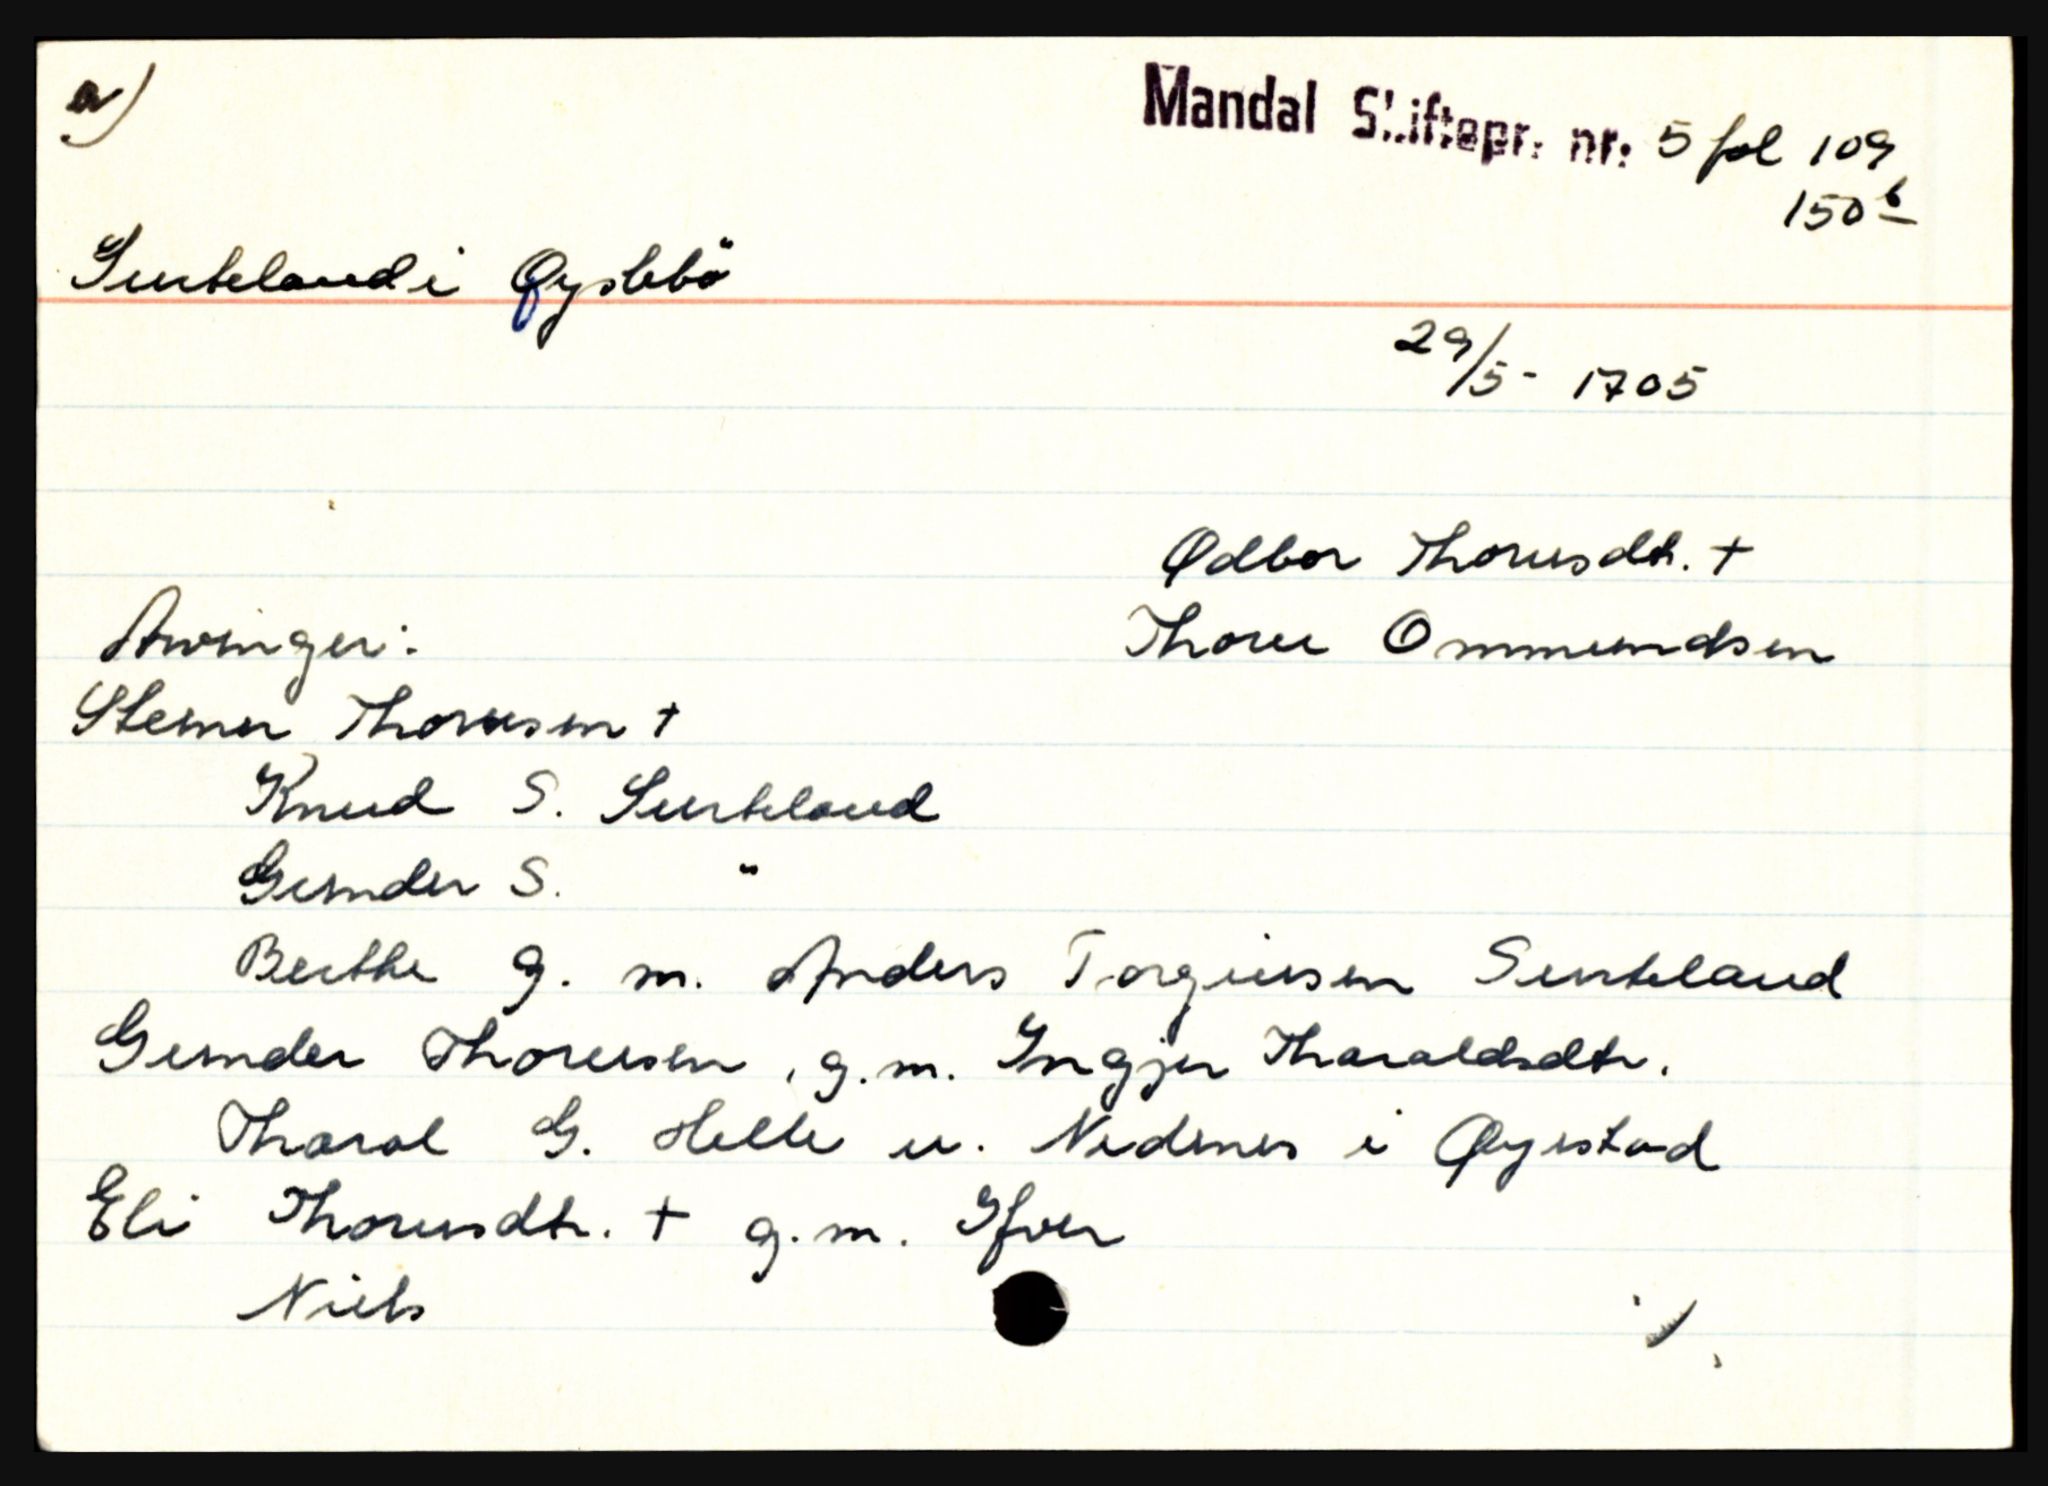 a)
Mandal Skiftepr. nr: 5 fol 109
150 b
Surteland i Øyslebö
29/5 - 1705
Odbor Thoresdtr. +
Arvinger:
Thore Ommundsen
Steiner Thoresen +
Knud S. Surteland
Gunder S. "
Berthe g. m. Anders Torgiersen Surteland
Gunder Thoresen, g. m. Ingjer Tharaldsdtr.
Tharal G. Helle u. Nedenes i Øyestad
Eli Thoresdtr. + g. m. Ifver
Niels